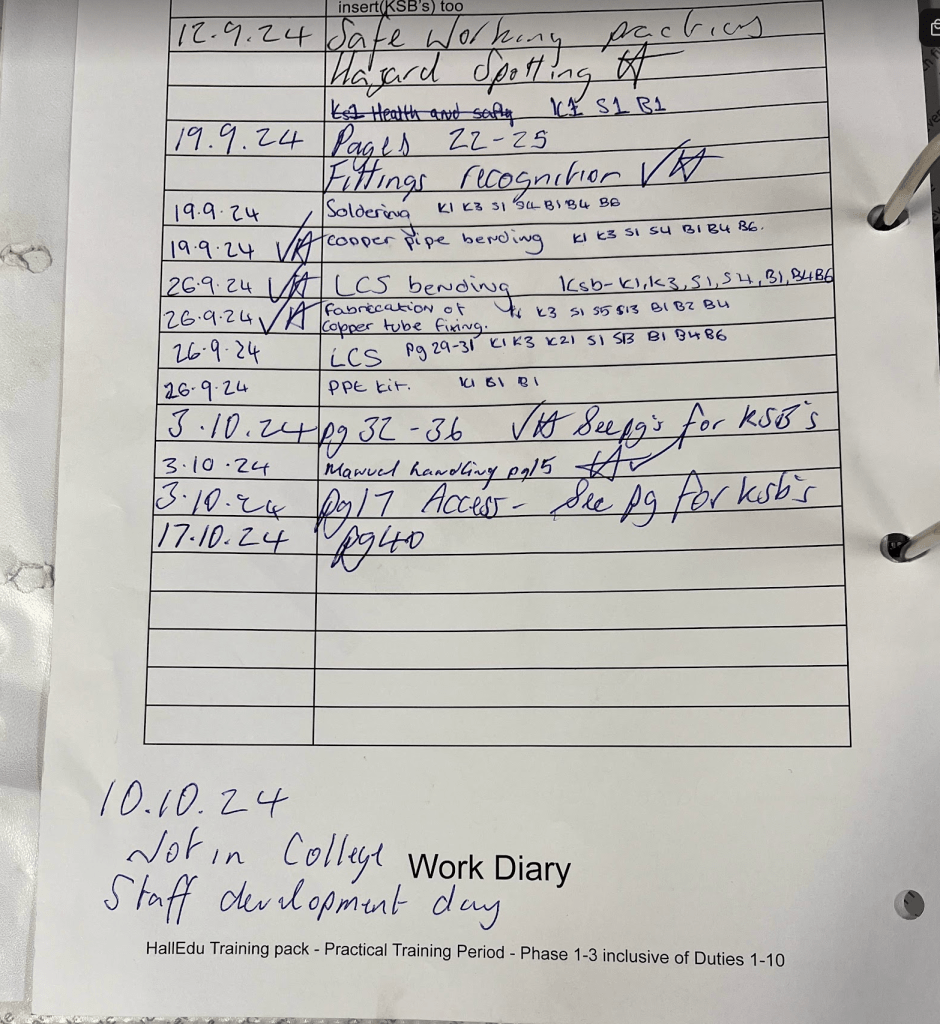 insert(KSB's) too
12.9.24 Safe working practices
Hazard Spotting
Ks1 Health and safty K1 S1 B1
19.9.24 Pages 22-25
Fittings recognition
19.9.24 Soldering K1 K3 S1 S4 B1 B4 B6
19.9.24 Copper pipe bending K1 K3 S1 S4 B1 B4 B6.
26.9.24 LCS bending Ksb- K1, K3, S1, S4, B1, B4 B6
26.9.24 Fabrication of K3 S1 S5 S13 B1 B2 B4
Copper tube fixing.
26.9.24 LCS pg 29-31 K1 K3 K21 S1 S13 B1 B4 B6
26.9.24 PPE kit. K1 S1 B1
3.10.24 pg 32-36 See pg's for KSB's
3.10.24 Manuel handling pg15
3.10.24 pg17 Access- See pg for ksb's
17.10.24 pg40
10.10.24
Not in College
Work Diary
Staff development day
HallEdu Training pack - Practical Training Period - Phase 1-3 inclusive of Duties 1-10